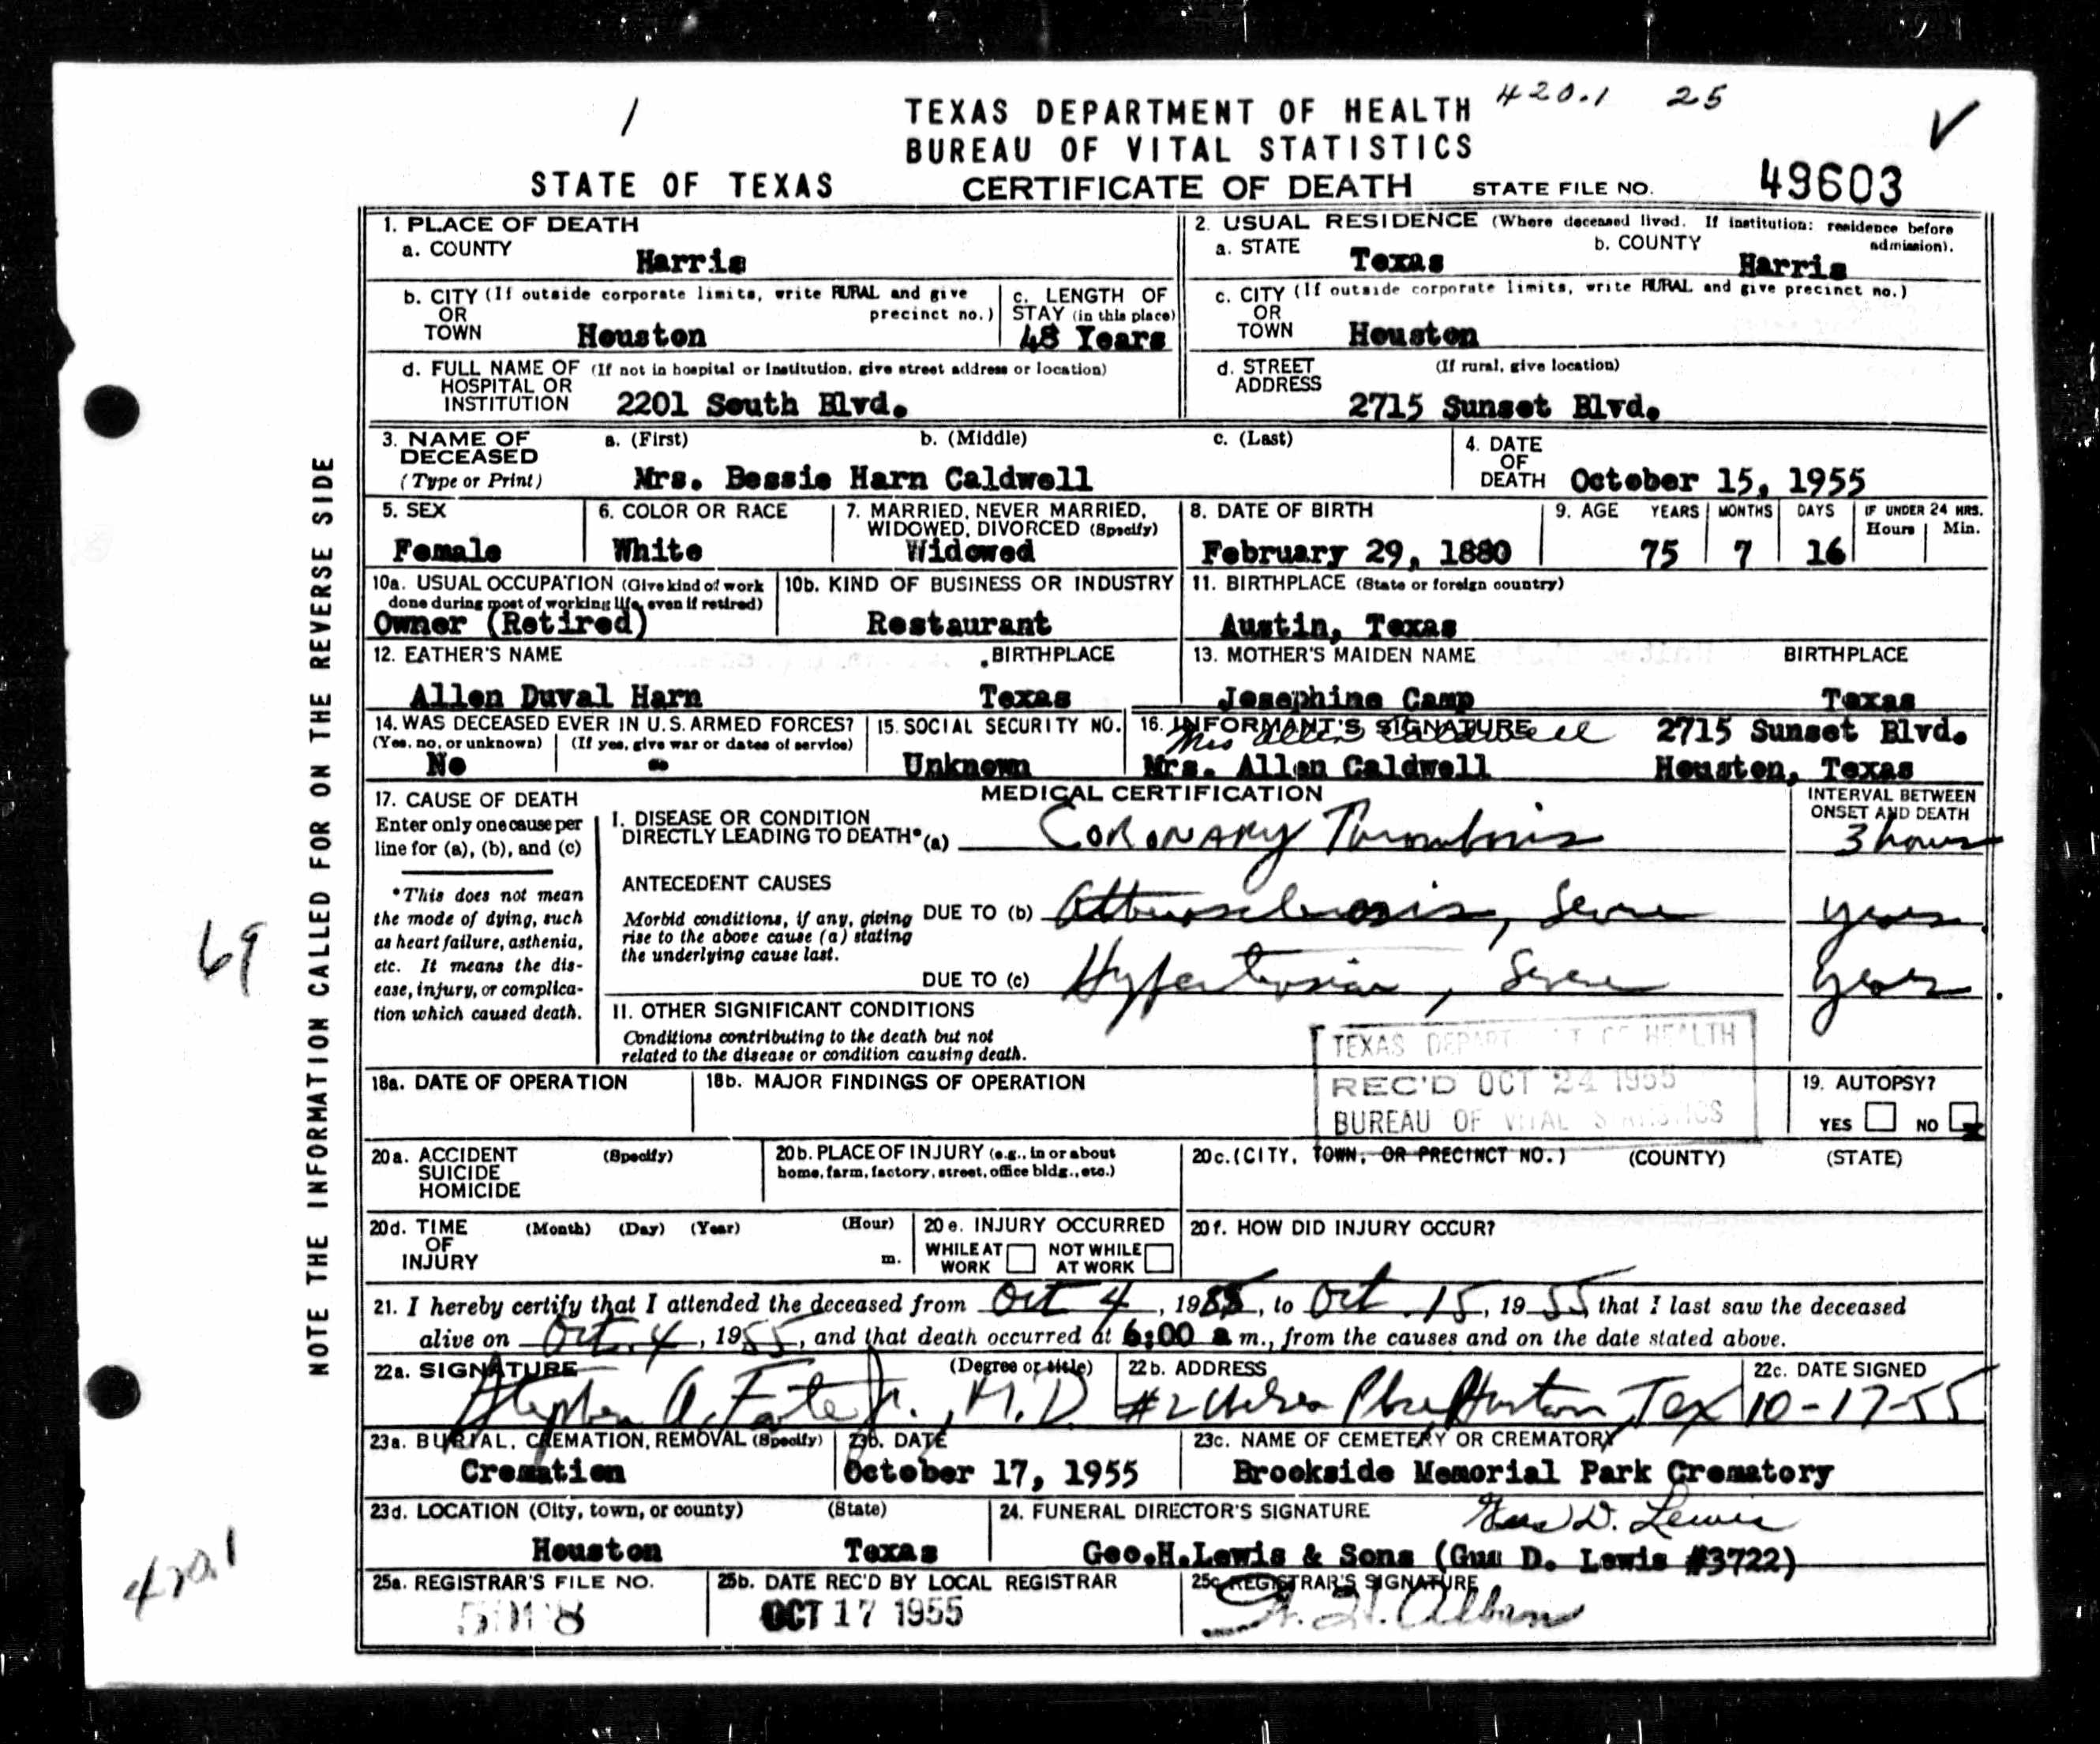 1
420.1 25
✓
TEXAS DEPARTMENT OF HEALTH
BUREAU OF VITAL STATISTICS
STATE OF TEXAS CERTIFICATE OF DEATH STATE FILE NO. 49603
NOTE THE INFORMATION CALLED FOR ON THE REVERSE SIDE
69
420.1
1. PLACE OF DEATH
a. COUNTY
Harris
2. USUAL RESIDENCE (Where deceased lived. If institution: residence before admission).
a. STATE Texas b. COUNTY Harris
b. CITY (If outside corporate limits, write RURAL and give precinct no.)
OR
TOWN Houston
c. LENGTH OF
STAY (in this place)
48 Years
c. CITY (If outside corporate limits, write RURAL and give precinct no.)
OR
TOWN Houston
d. FULL NAME OF (If not in hospital or institution, give street address or location)
HOSPITAL OR
INSTITUTION 2201 South Blvd.
d. STREET (If rural, give location)
ADDRESS
2715 Sunset Blvd.
3. NAME OF a. (First) b. (Middle) c. (Last)
DECEASED
(Type or Print) Mrs. Bessie Harn Caldwell
4. DATE
OF
DEATH October 15, 1955
5. SEX
Female
6. COLOR OR RACE
White
7. MARRIED, NEVER MARRIED,
WIDOWED, DIVORCED (Specify)
Widowed
8. DATE OF BIRTH
February 29, 1880
9. AGE YEARS MONTHS DAYS IF UNDER 24 HRS.
Hours Min.
75 7 16
10a. USUAL OCCUPATION (Give kind of work
done during most of working life, even if retired)
Owner (Retired)
10b. KIND OF BUSINESS OR INDUSTRY
Restaurant
11. BIRTHPLACE (State or foreign country)
Austin, Texas
12. FATHER'S NAME BIRTHPLACE
Allen Duval Harn Texas
13. MOTHER'S MAIDEN NAME BIRTHPLACE
Josephine Camp Texas
14. WAS DECEASED EVER IN U.S. ARMED FORCES?
(Yes, no, or unknown) (If yes, give war or dates of service)
No -
15. SOCIAL SECURITY NO.
Unknown
16. INFORMANT'S SIGNATURE 2715 Sunset Blvd.
Mrs Allen Caldwell
Mrs. Allen Caldwell Houston, Texas
17. CAUSE OF DEATH
Enter only one cause per
line for (a), (b), and (c)
*This does not mean
the mode of dying, such
as heart failure, asthenia,
etc. It means the dis-
ease, injury, or complica-
tion which caused death.
MEDICAL CERTIFICATION
INTERVAL BETWEEN
ONSET AND DEATH
I. DISEASE OR CONDITION
DIRECTLY LEADING TO DEATH* (a) Coronary Thrombosis 3 hours
ANTECEDENT CAUSES
Morbid conditions, if any, giving
rise to the above cause (a) stating
the underlying cause last.
DUE TO (b) Atherosclerosis, Severe years
DUE TO (c) Hypertension, Severe years
II. OTHER SIGNIFICANT CONDITIONS
Conditions contributing to the death but not
related to the disease or condition causing death.
TEXAS DEPARTMENT OF HEALTH
REC'D OCT 24 1955
BUREAU OF VITAL STATISTICS
18a. DATE OF OPERATION
18b. MAJOR FINDINGS OF OPERATION
19. AUTOPSY?
YES NO
20a. ACCIDENT (Specify)
SUICIDE
HOMICIDE
20b. PLACE OF INJURY (e.g., in or about
home, farm, factory, street, office bldg., etc.)
20c. (CITY, TOWN, OR PRECINCT NO.) (COUNTY) (STATE)
20d. TIME (Month) (Day) (Year) (Hour)
OF
INJURY m.
20e. INJURY OCCURRED
WHILE AT NOT WHILE
WORK AT WORK
20f. HOW DID INJURY OCCUR?
21. I hereby certify that I attended the deceased from Oct 4, 1955, to Oct. 15, 1955, that I last saw the deceased
alive on Oct. 4, 1955, and that death occurred at 6:00 a m., from the causes and on the date stated above.
22a. SIGNATURE (Degree or title)
Stephen A. Foote Jr., M.D.
22b. ADDRESS
#2 Chelsea Place, Houston, Tex
22c. DATE SIGNED
10-17-55
23a. BURIAL, CREMATION, REMOVAL (Specify)
Cremation
23b. DATE
October 17, 1955
23c. NAME OF CEMETERY OR CREMATORY
Brookside Memorial Park Crematory
23d. LOCATION (City, town, or county) (State)
Houston Texas
24. FUNERAL DIRECTOR'S SIGNATURE Gus D. Lewis
Geo.H.Lewis & Sons (Gus D. Lewis #3722)
25a. REGISTRAR'S FILE NO.
25b. DATE REC'D BY LOCAL REGISTRAR
OCT 17 1955
25c. REGISTRAR'S SIGNATURE